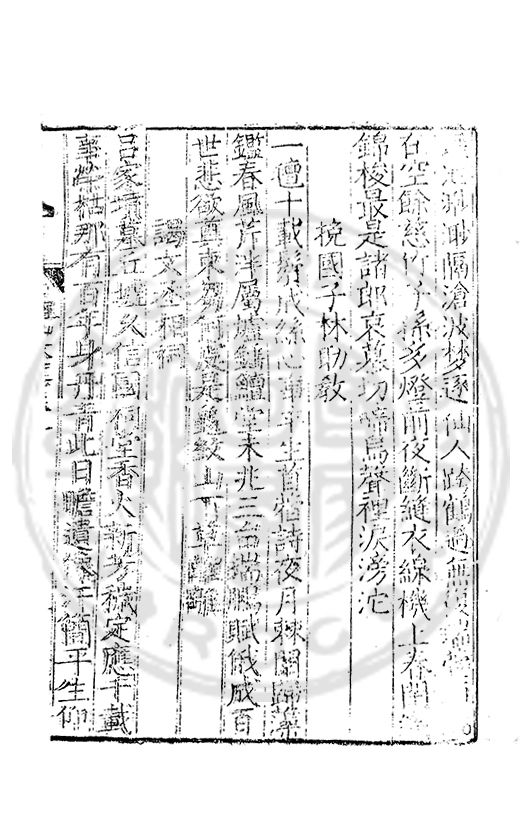 隔滄波梦逐仙人跨鶴過無
空餘慈竹子孫多燈前夜斷縫衣線機上春閒
錦梭最是諸郎哀慕切啼烏聲裡淚滂沱
挽國子林助教
一氊十載鬢成絲心事平生首蓿詩夜月棘闈歸藻
鑑春風芹泮屬爐錘鱣堂未兆三台瑞鵩賦俄成百
世悲欲奠束芻何處是龜紋山下草離離
謁文丞相祠
呂家墳墓丘墟久信國祠堂香火新芳穢定應千載
事榮枯那有百年身丹青此日瞻遺像汗簡平生仰